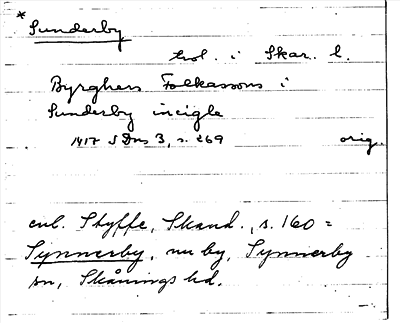 * Sunderby
hol. i Skar. l.
Byrghers Folkassons i
Sunderby incigle
1417 SDns 3, s. 269 orig.
enl. Styffe, Skand., s. 160 =
Synnerby, nu by, Synnerby
sn, Skånings hd.